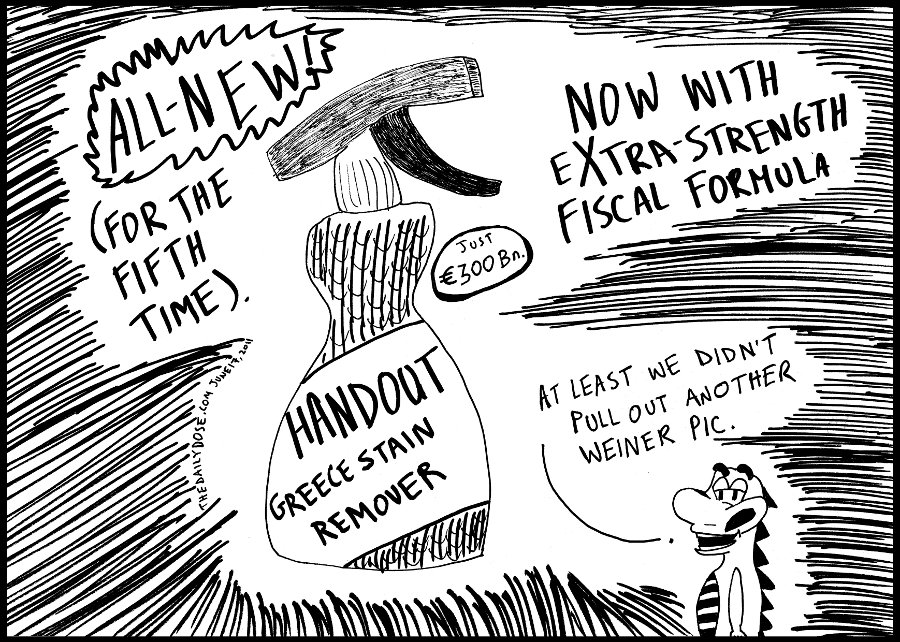 ALL-NEW!
(FOR THE
FIFTH
TIME).
NOW WITH
EXTRA-STRENGTH
FISCAL FORMULA
JUST
€300 Bn.
HANDOUT
GREECE STAIN
REMOVER
AT LEAST WE DIDN'T
PULL OUT ANOTHER
WEINER PIC.
THEDAILYDOSE.COM JUNE 17, 2011